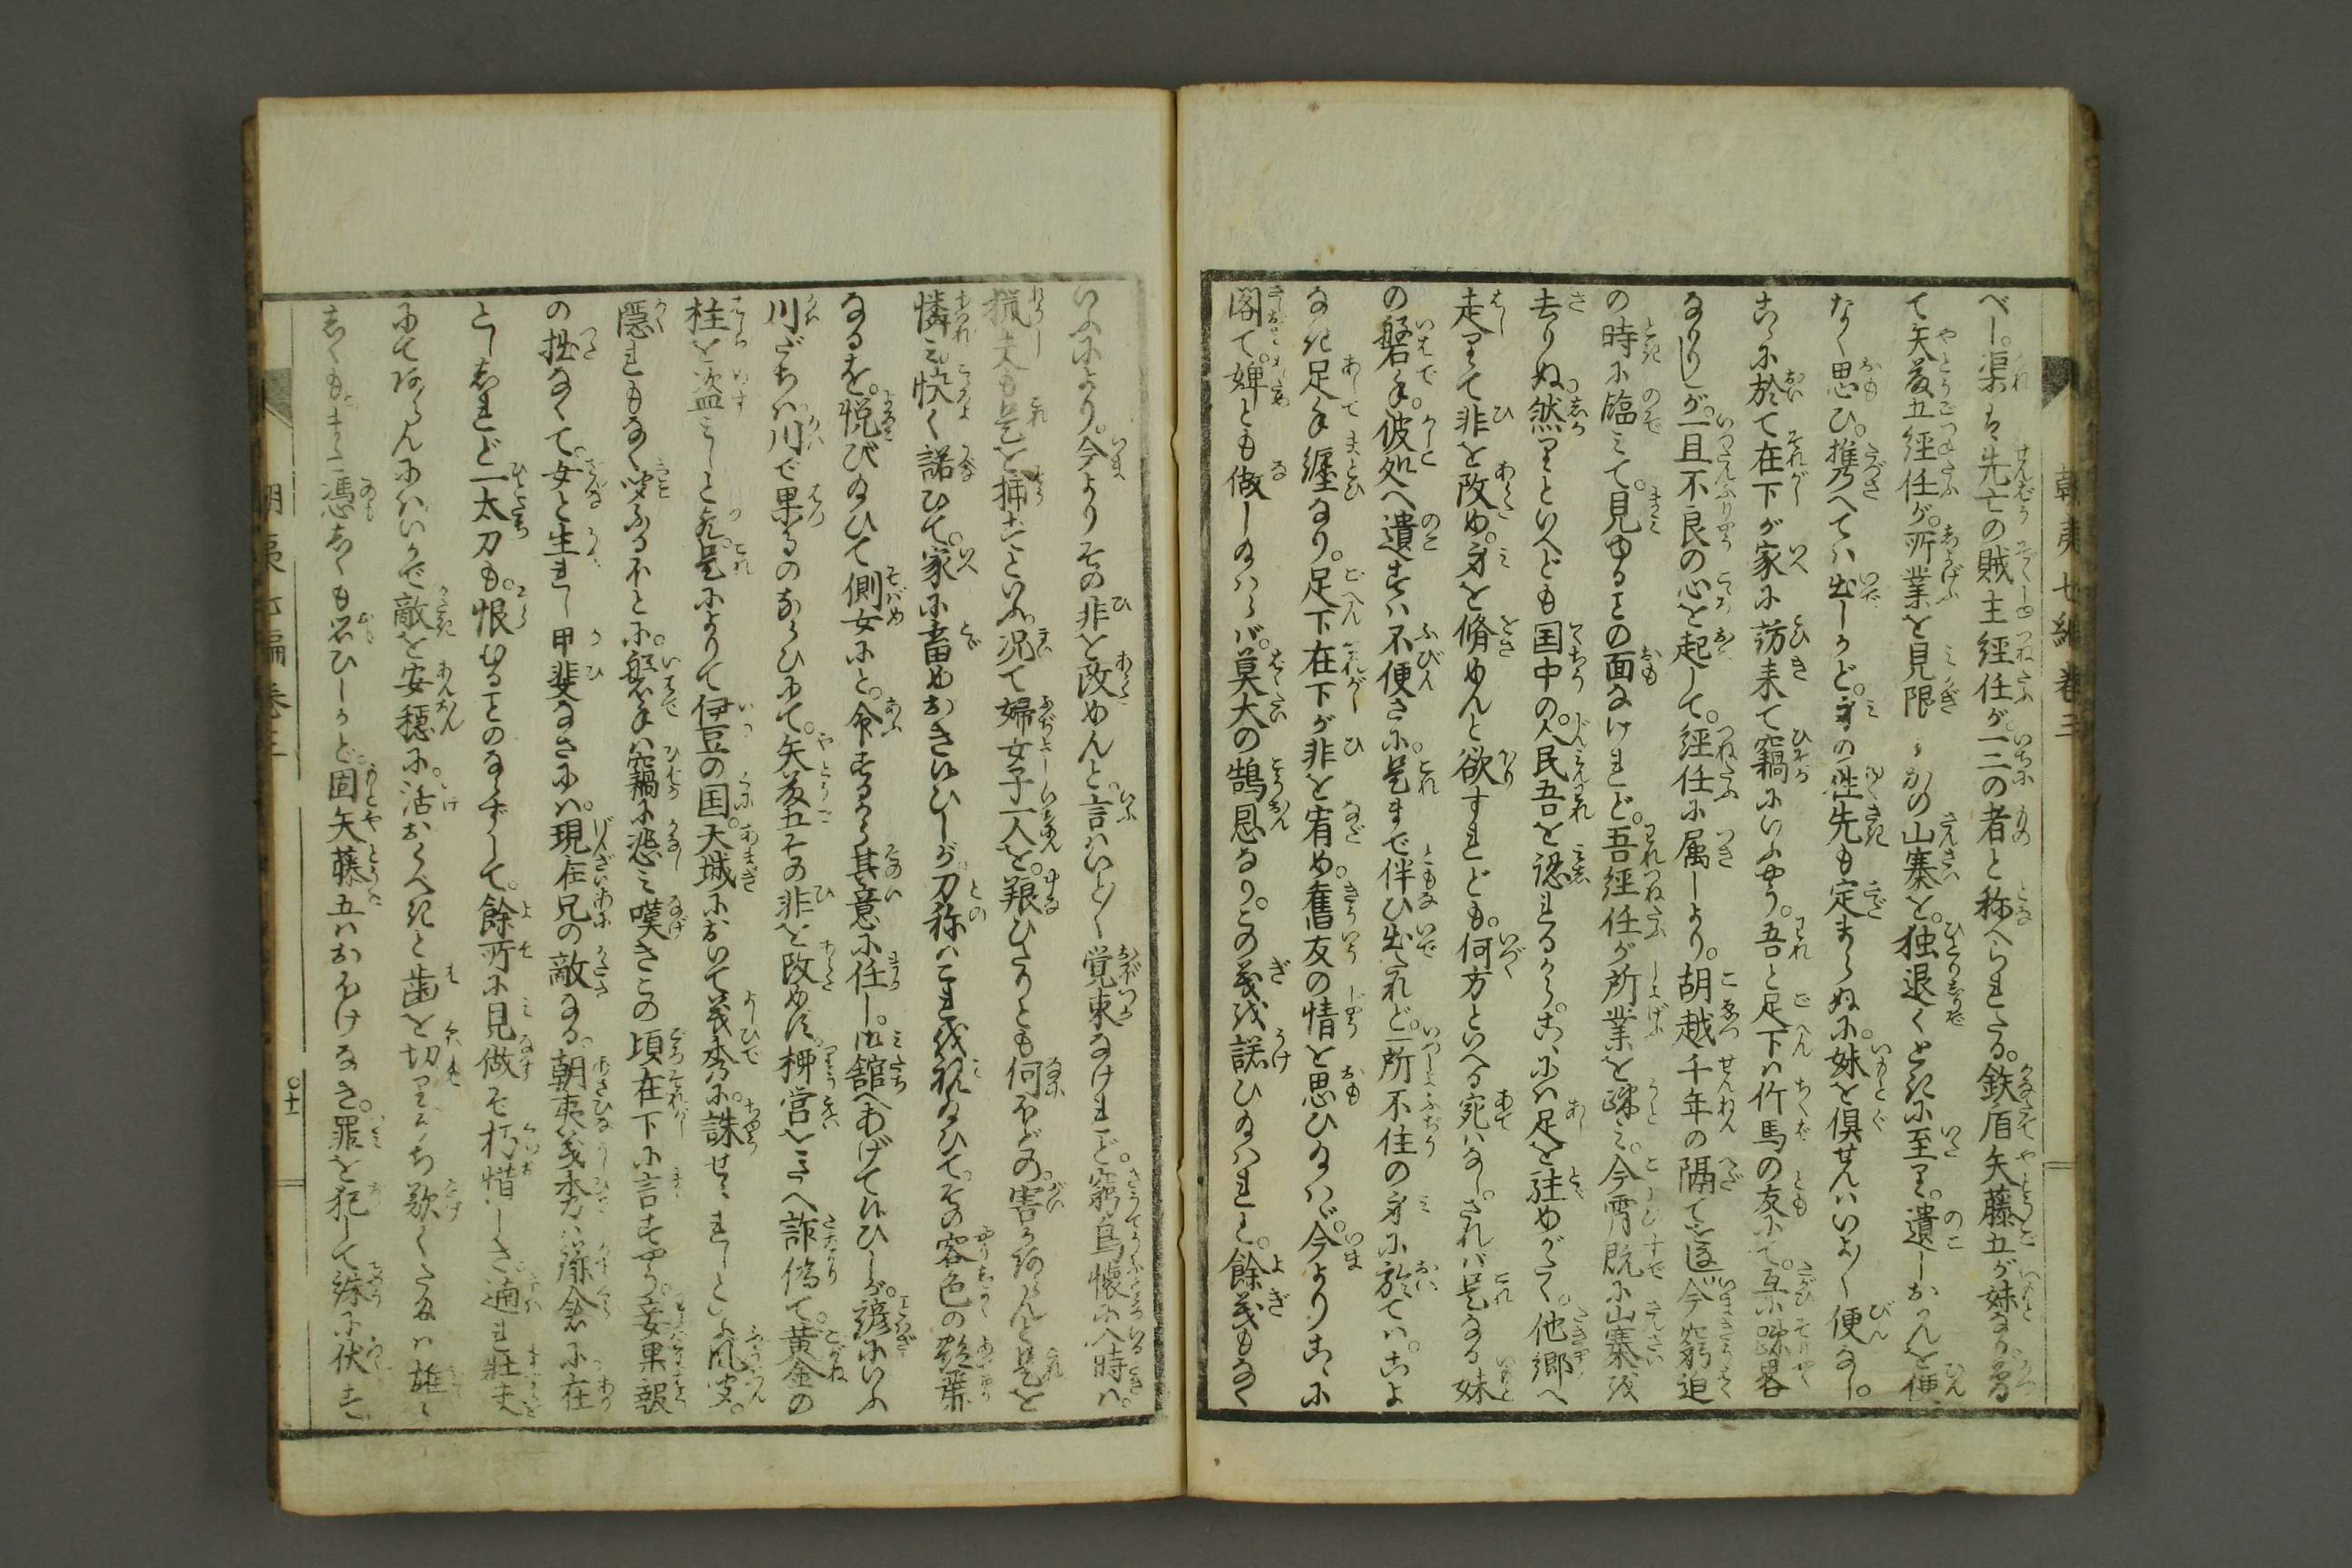 朝夷七編巻三
べし。渠は先亡の賊主経任が。一二の者と称へられたる。鉄盾矢藤五が妹なり。曩
て矢藤五経任が。所業を見限りかの山寨を。独退くときに至り。遺しおかんを便
なく思ひ。携へては出しかど。身の往先も定まらぬに。妹を倶せんはいよ〱便なし。
こゝに於て在下が家に訪来て竊にいふやう。吾と足下は竹馬の友にて。互に疎畧
なかりしが。一旦不良の心を起して。経任に属しより。胡越千年の隔てを
の時に臨みて。見ゆることの面なけれど。吾経任が所業を疎み。今宵既に山寨を
去りぬ。然りといへども国中の。人民吾を認れるから。こゝには足を駐めがたく。他郷へ
走りて非を改め。身を脩めんと欲すれども。何方といへる宛はなし。されば是なる妹
の磐手。彼処へ遺さば不便さに。是まで伴ひ出たれど。一所不住の身に於ては。こよ
なき足手纏なり。足下在下が非を宥め。舊友の情を思ひなば。今よりこゝに
閣て。婢とも做し給はらば。莫大の鵠恩なり。この義を諾ひ給はれと。餘義もなく
いふにより。今よりその非を改めんと。言はいと〱覚束なけれど。窮鳥懐に入時は。
猟夫も是を捕ずといふ。况て婦女子一人を。羪ひたりとも何ほどの。害かあらんと是を
憐み快く諾ひて。家に畜めおき候ひしが。刀祢はこれを視給ひて。その容色の艶葉
なるを。悦び給ひて側女にと。命するから其意に任し。御館へあげて候ひしが。諺にいふ
川だちは川で果るのならひにて。矢藤五その非を改めず。柳営をさへ詐偽て。黄金の
柱を盗みしと是によりて伊豆の国。天城において義秀に。誅せられしといふ風聞。
隠れもなく聞ふるほどに。磐手は竊に悲み嘆きこの頃在下に言すやう。妾果報
の拙なくて。女と生れし甲斐なさには。現在兄の敵なる。朝夷義秀は鎌倉に在
としゝれど一太刀も。恨むることのならずして。餘所に見做そ朽惜しさ。適れ壮夫
にてあらんにはいかで敵を安穏に。活おくべきと歯を切りうち歎くさまは雄々
しくも。また憑しくも思ひしかど。固矢藤五はおほけなき。罪を犯して誅に伏す
朝夷七編巻三
〇十一